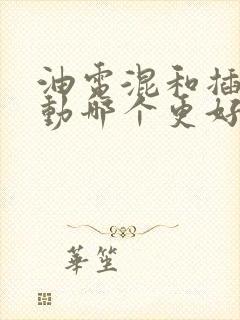 油電混和插
動哪个更好
華笙